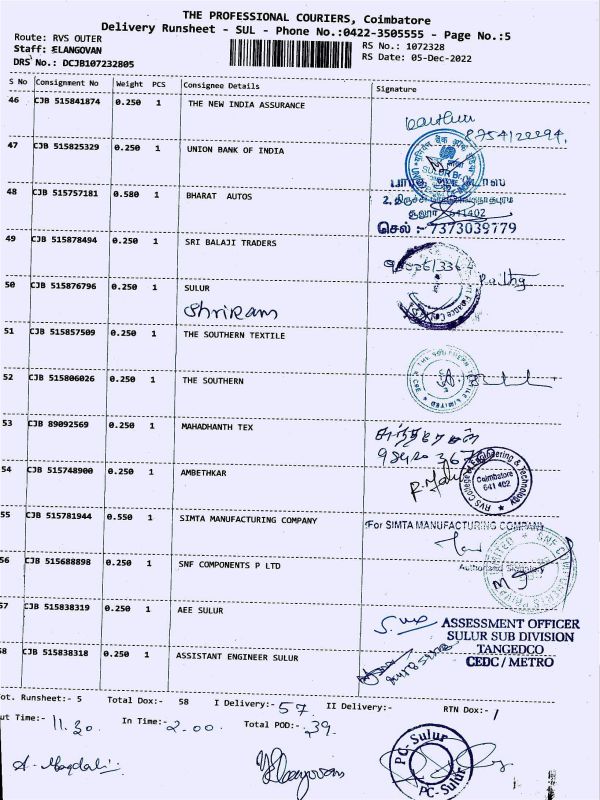 THE PROFESSIONAL COURIERS, Coimbatore
Delivery Runsheet - SUL - Phone No.:0422-3505555 - Page No.:5
Route: RVS OUTER
RS No.: 1072328
Staff: ELANGOVAN
RS Date: 05-Dec-2022
DRS No.: DCJB107232805
S No Consignment No Weight PCS Consignee Details Signature
46 CJB 515841874 0.250 1 THE NEW INDIA ASSURANCE
47 CJB 515825329 0.250 1 UNION BANK OF INDIA
SULUR Br.
48 CJB 515757181 0.580 1 BHARAT AUTOS
641402
செல் :- 7373039779
49 CJB 515878494 0.250 1 SRI BALAJI TRADERS
50 CJB 515876796 0.250 1 SULUR
Shriram
51 CJB 515857509 0.250 1 THE SOUTHERN TEXTILE
52 CJB 515806026 0.250 1 THE SOUTHERN
53 CJB 89092569 0.250 1 MAHADHANTH TEX
54 CJB 515748900 0.250 1 AMBETHKAR
RVS College of Engineering & Technology
Coimbatore
641 402
55 CJB 515781944 0.550 1 SIMTA MANUFACTURING COMPANY
For SIMTA MANUFACTURING COMPANY
Authorised Signatory
56 CJB 515688898 0.250 1 SNF COMPONENTS P LTD
57 CJB 515838319 0.250 1 AEE SULUR
ASSESSMENT OFFICER
SULUR SUB DIVISION
TANGEDCO
CEDC / METRO
58 CJB 515838318 0.250 1 ASSISTANT ENGINEER SULUR
Tot. Runsheet:- 5 Total Dox:- 58 I Delivery:- 57 II Delivery:- RTN Dox:- 1
Out Time:- 11.30 In Time:- 2.00 Total POD:- 39
A. Magdali
PC-Sulur
PC-Sulur